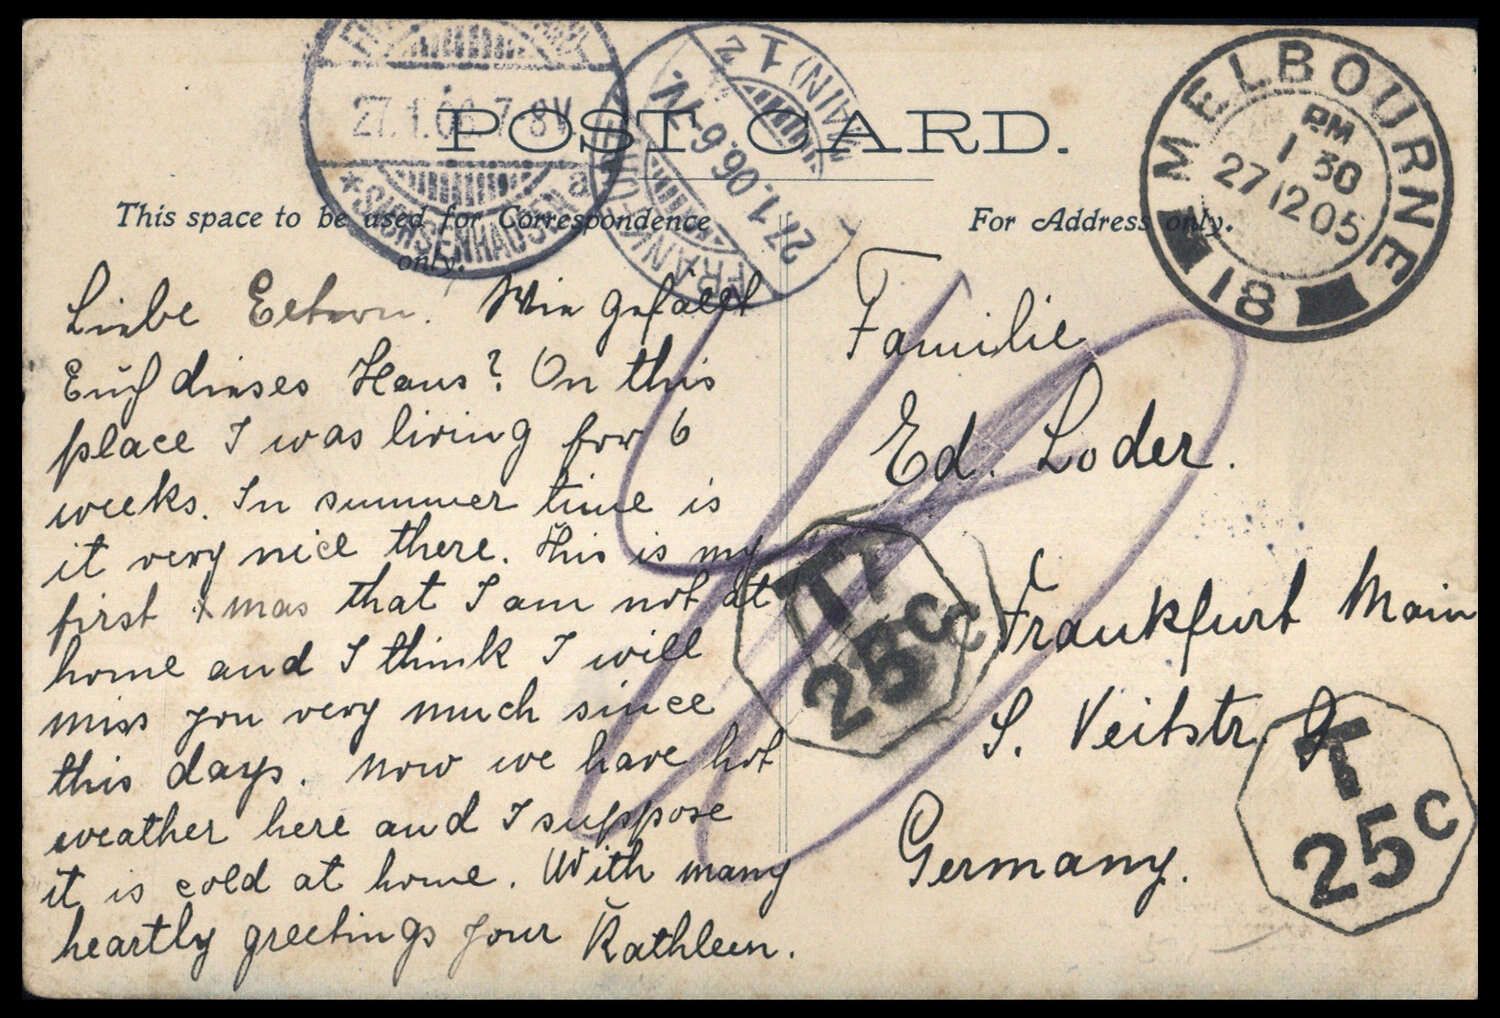 POST CARD.
This space to be used for Correspondence only.
For Address only.
MELBOURNE
PM
1 30
27 12 05
18
27.1.06.7-8V.
* SACHSENHAUSEN a
FRANKFURT (MAIN) 1
27.1.06.6-7V.
Liebe Eltern. Wie gefällt
Euch dieses Haus? On this
place I was living for 6
weeks. In summer time is
it very nice there. This is my
first Xmas that I am not at
home and I think I will
miss you very much since
this days. Now we have hot
weather here and I suppose
it is cold at home. With many
heartly greetings your Kathleen.
Familie
Ed. Loder.
Frankfurt Main
S. Veitstr
Germany.
T
25c
T
25c